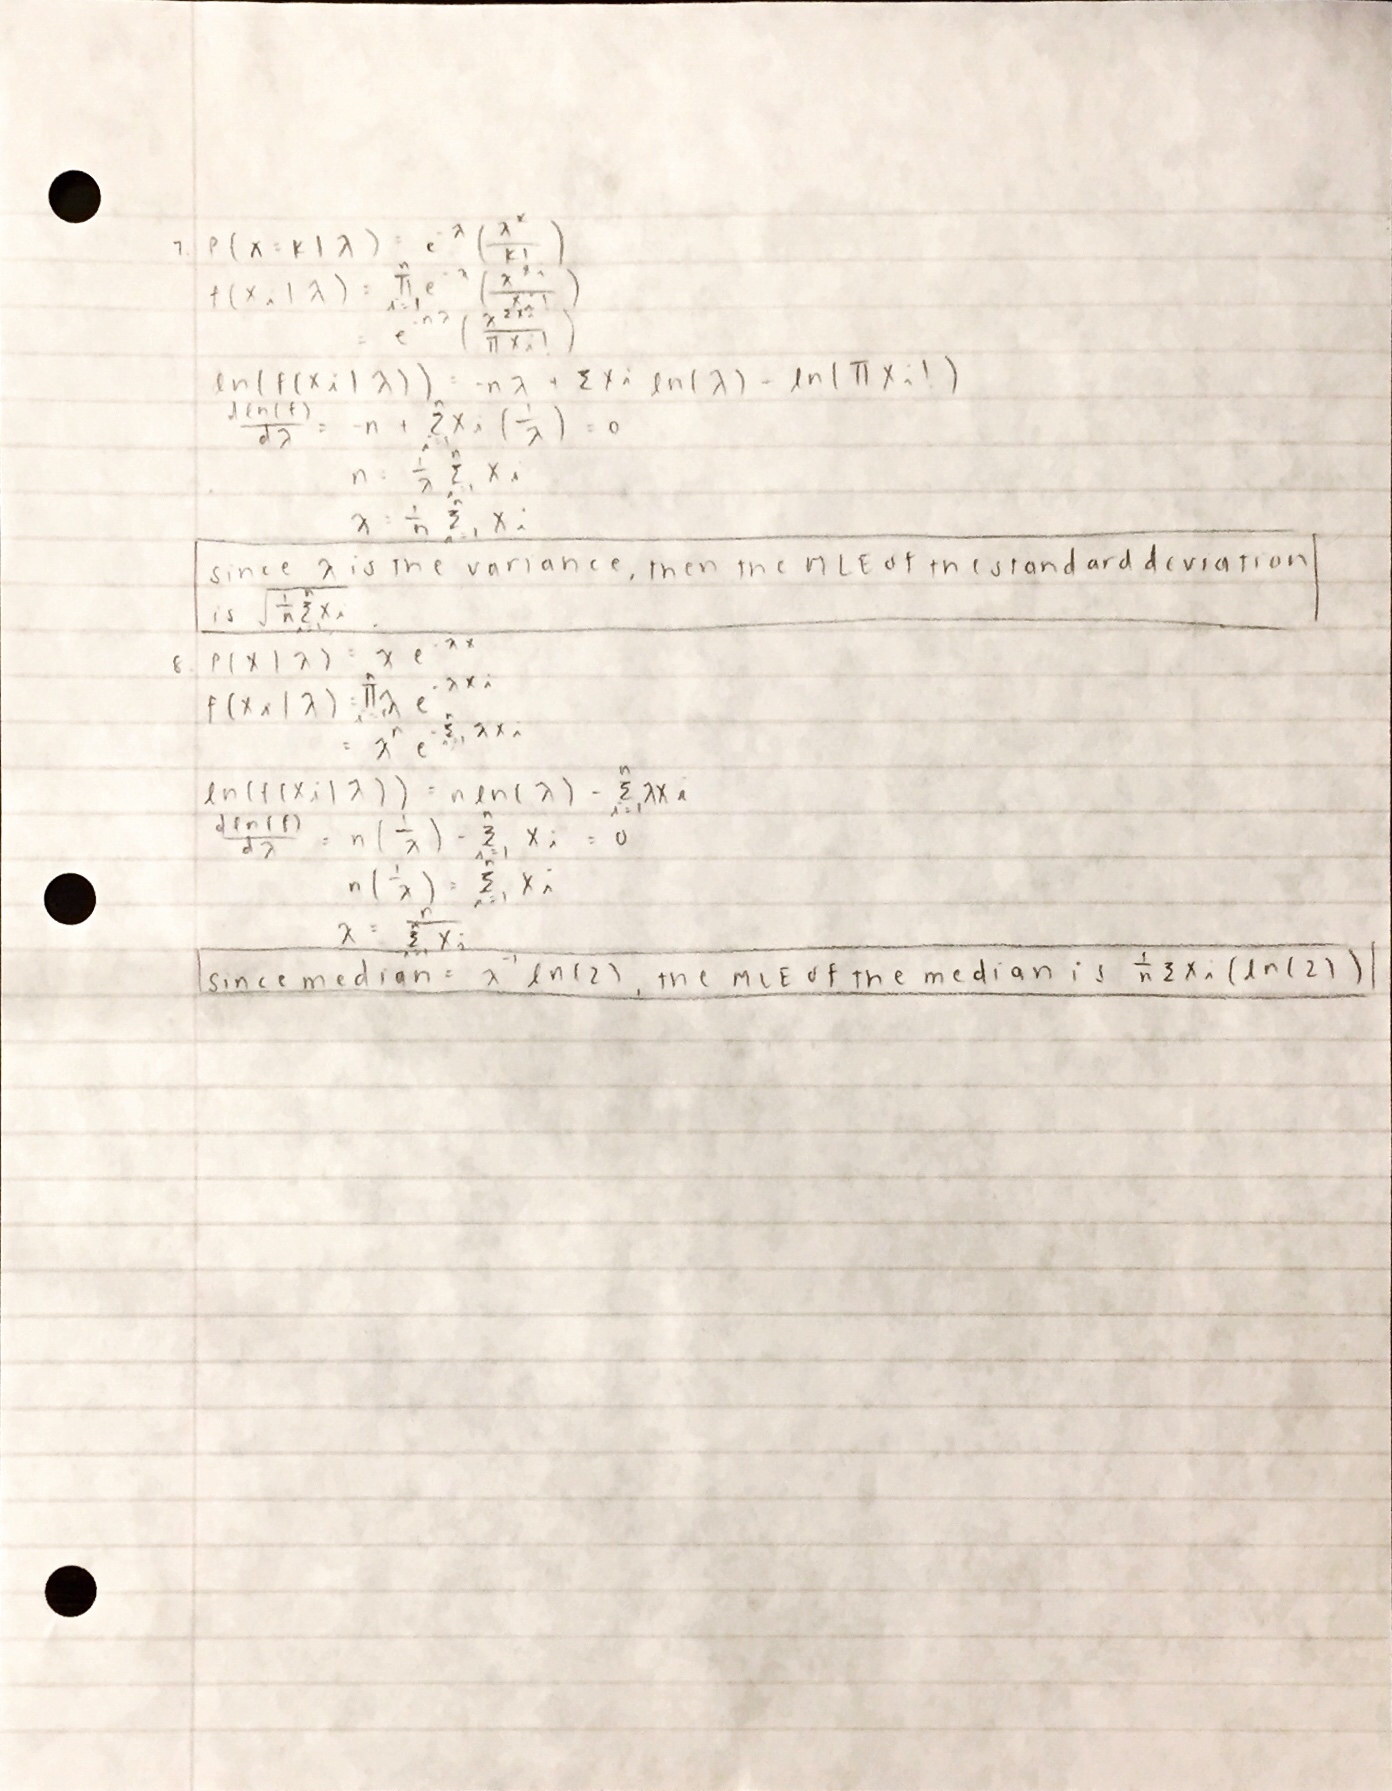 7. P(X=k|λ) = e^-λ (λ^k/k!)
f(xi|λ) = ∏_{i=1}^n e^-λ (λ^xi/xi!)
= e^-nλ (λ^Σxi/∏xi!)
ln(f(xi|λ)) = -nλ + Σxi ln(λ) - ln(∏xi!)
dln(f)/dλ = -n + Σ_{i=1}^n xi (1/λ) = 0
n = 1/λ Σ_{i=1}^n xi
λ = 1/n Σ_{i=1}^n xi
since λ is the variance, then the MLE of the standard deviation
is √(1/n Σ_{i=1}^n xi).
8. P(X|λ) = λ e^-λx
f(xi|λ) = ∏_{i=1}^n λ e^-λxi
= λ^n e^-Σ_{i=1}^n λxi
ln(f(xi|λ)) = n ln(λ) - Σ_{i=1}^n λxi
dln(f)/dλ = n(1/λ) - Σ_{i=1}^n xi = 0
n(1/λ) = Σ_{i=1}^n xi
λ = n/Σ_{i=1}^n xi
since median = λ^-1 ln(2), the MLE of the median is 1/n Σxi (ln(2))